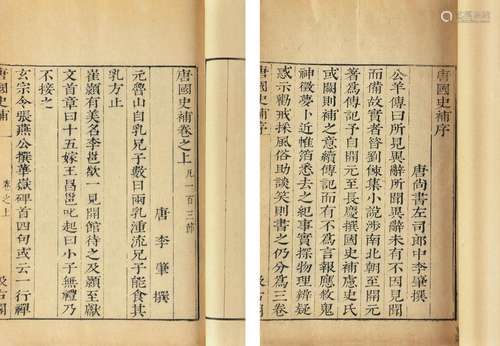 唐國史補序
唐尚書左司郎中李肇撰
公羊傳曰所見異辭所聞異辭未有不因見聞
而備故實者昔劉餗集小說涉南北朝至開元
著為傳記予自開元至長慶撰國史補慮史氏
或闕則補之意續傳記而有不為言報應敘鬼
神徵夢卜近帷箔悉去之紀事實探物理辨疑
惑示勸戒採風俗助談笑則書之仍分為三卷
唐國史補 序
唐國史補卷之上 凡一百三節
唐 李肇 撰
元魯山自乳兄子數日兩乳湩流兄子能食其
乳方止
崔顥有美名李邕欲一見開館待之及顥至獻
文首章曰十五嫁王昌邕叱起曰小子無禮乃
不接之
玄宗令張燕公撰華嶽碑首四句或云一行禪
唐國史補 卷之上